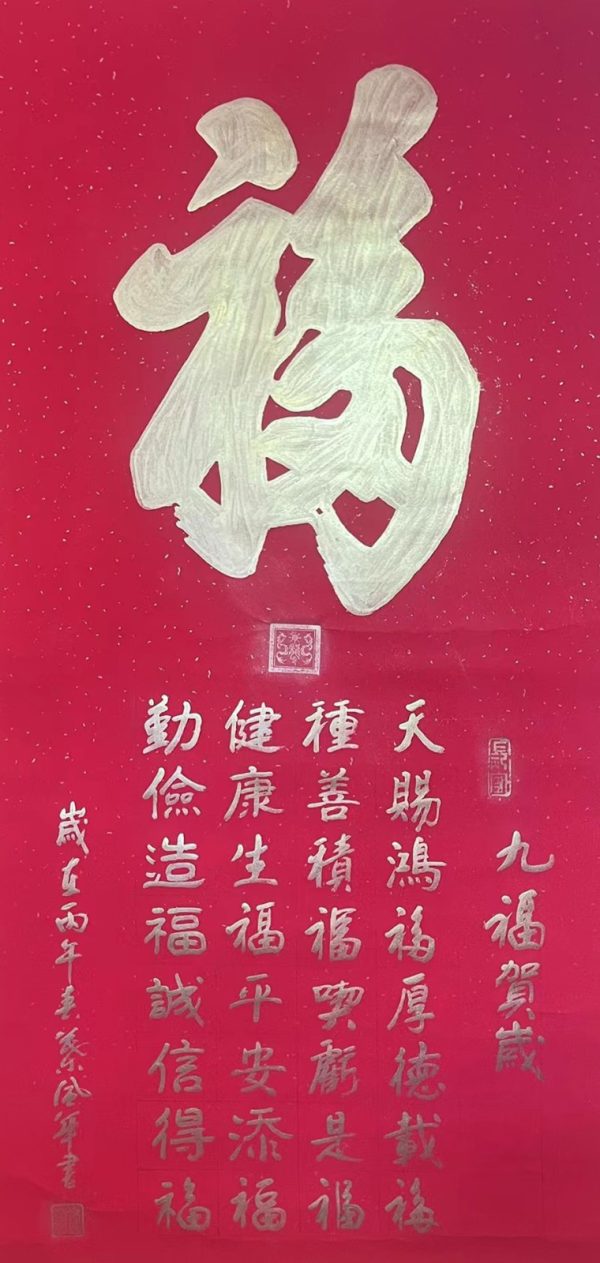 福
九福賀歲
天賜鴻福厚德載福
種善積福喫虧是福
健康生福平安添福
勤儉造福誠信得福
歲在丙午春書